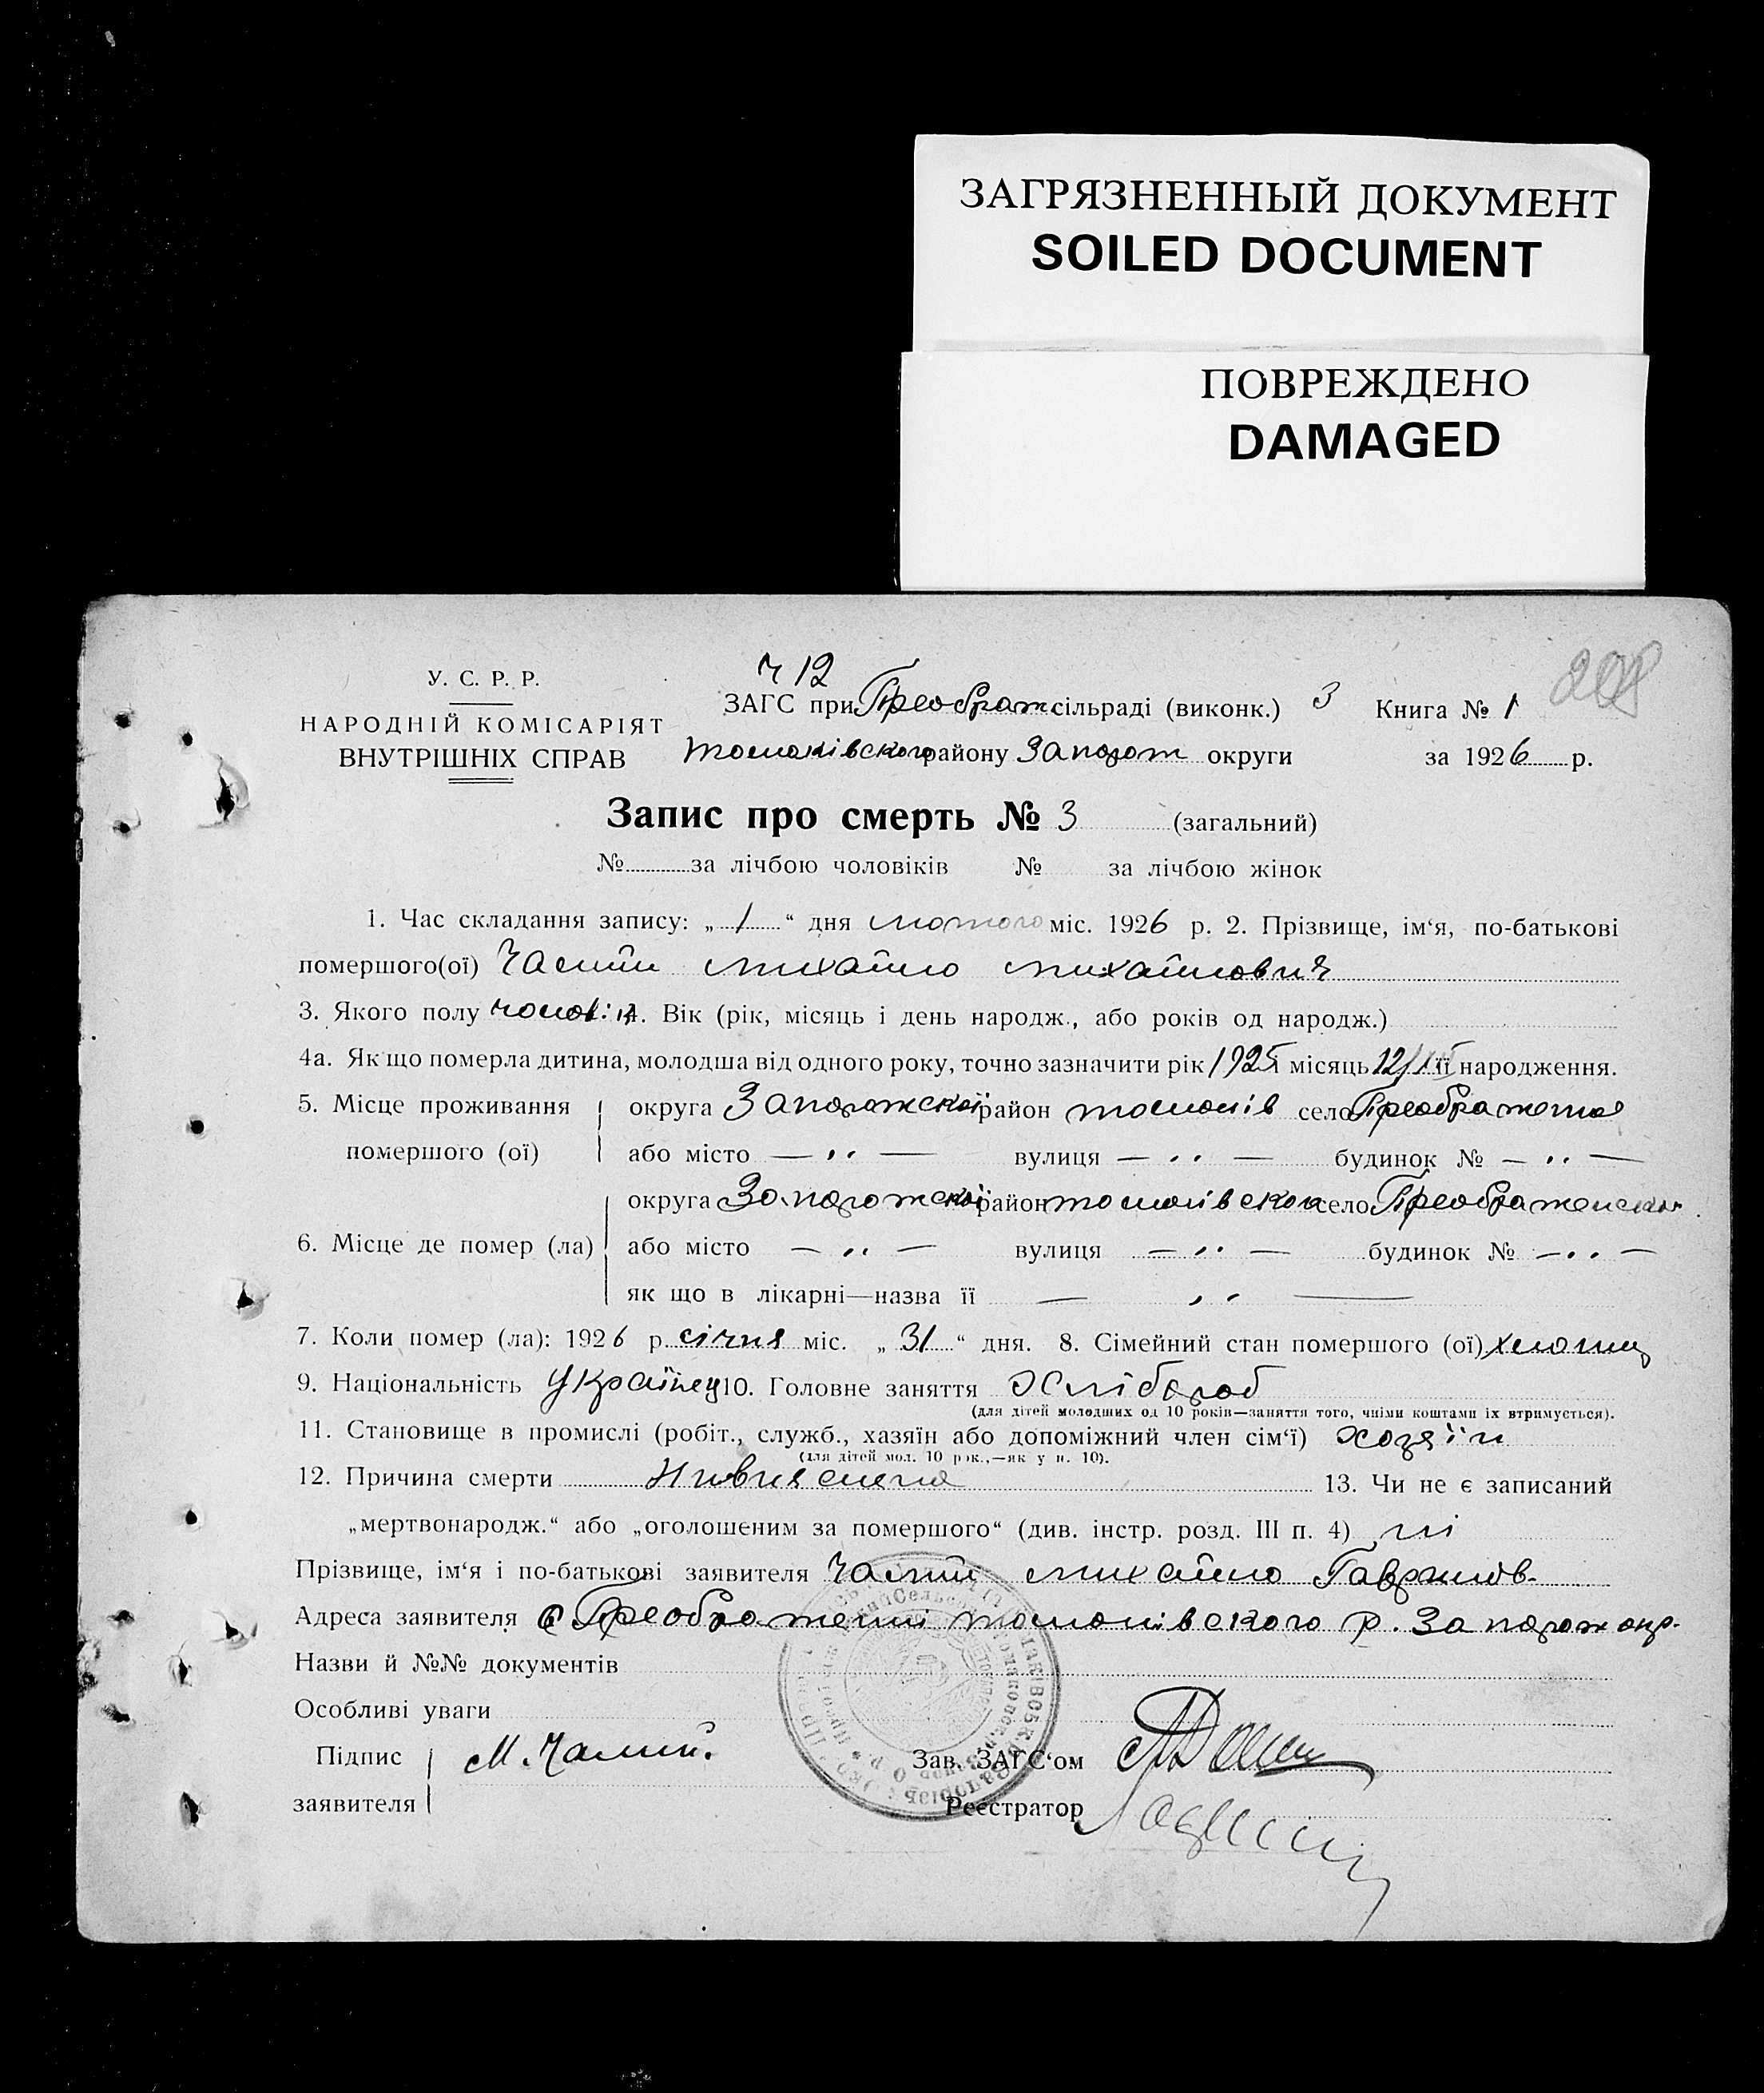 ЗАГРЯЗНЕННЫЙ ДОКУМЕНТ
SOILED DOCUMENT
ПОВРЕЖДЕНО
DAMAGED
У. С. Р. Р.
НАРОДНІЙ КОМІСАРІЯТ
ВНУТРІШНІХ СПРАВ
ч 12
ЗАГС при Преображ сільраді (виконк.) 3 Книга № 1
Томаківського району Запорож округи за 1926 р.
Запис про смерть № 3 (загальний)
№ за лічбою чоловіків № за лічбою жінок
1. Час складання запису: „1“ дня лютого міс. 1926 р. 2. Прізвище, ім‘я, по-батькові
помершого(ої) Чалий Михайло Михайлович
3. Якого полу чолов. 4. Вік (рік, місяць і день народж., або років од народж.)
4а. Як що померла дитина, молодша від одного року, точно зазначити рік 1925 місяць її народження.
5. Місце проживання округа Запорожської район Томаків село
помершого (ої) або місто — „ — вулиця — „ — будинок № — „ —
округа Запорожської район Томаківског село
6. Місце де помер (ла) або місто — „ — вулиця — „ — будинок № — „ —
як що в лікарні—назва її — „ —
7. Коли помер (ла): 1926 р. січня міс. „31“ дня. 8. Сімейний стан помершого (ої)
9. Національність Українец 10. Головне заняття Хлібороб
(для дітей молодших од 10 років—заняття того, чиїми коштами їх втримується).
11. Становище в промислі (робіт., служб., хазяїн або допоміжний член сім‘ї) хозяїн
(для дітей мол. 10 рок.,—як у п. 10).
12. Причина смерти 13. Чи не є записаний
„мертвонародж.“ або „оголошеним за помершого“ (див. інстр. розд. III п. 4) ні
Прізвище, ім‘я і по-батькові заявителя Чалий Михайло Гаврилов.
Адреса заявителя с Преображенні Томаківского р. Запорож окр.
Назви й №№ документів
Особливі уваги
Підпис М. Чалий. Зав. ЗАГС‘ом
заявителя Реєстратор